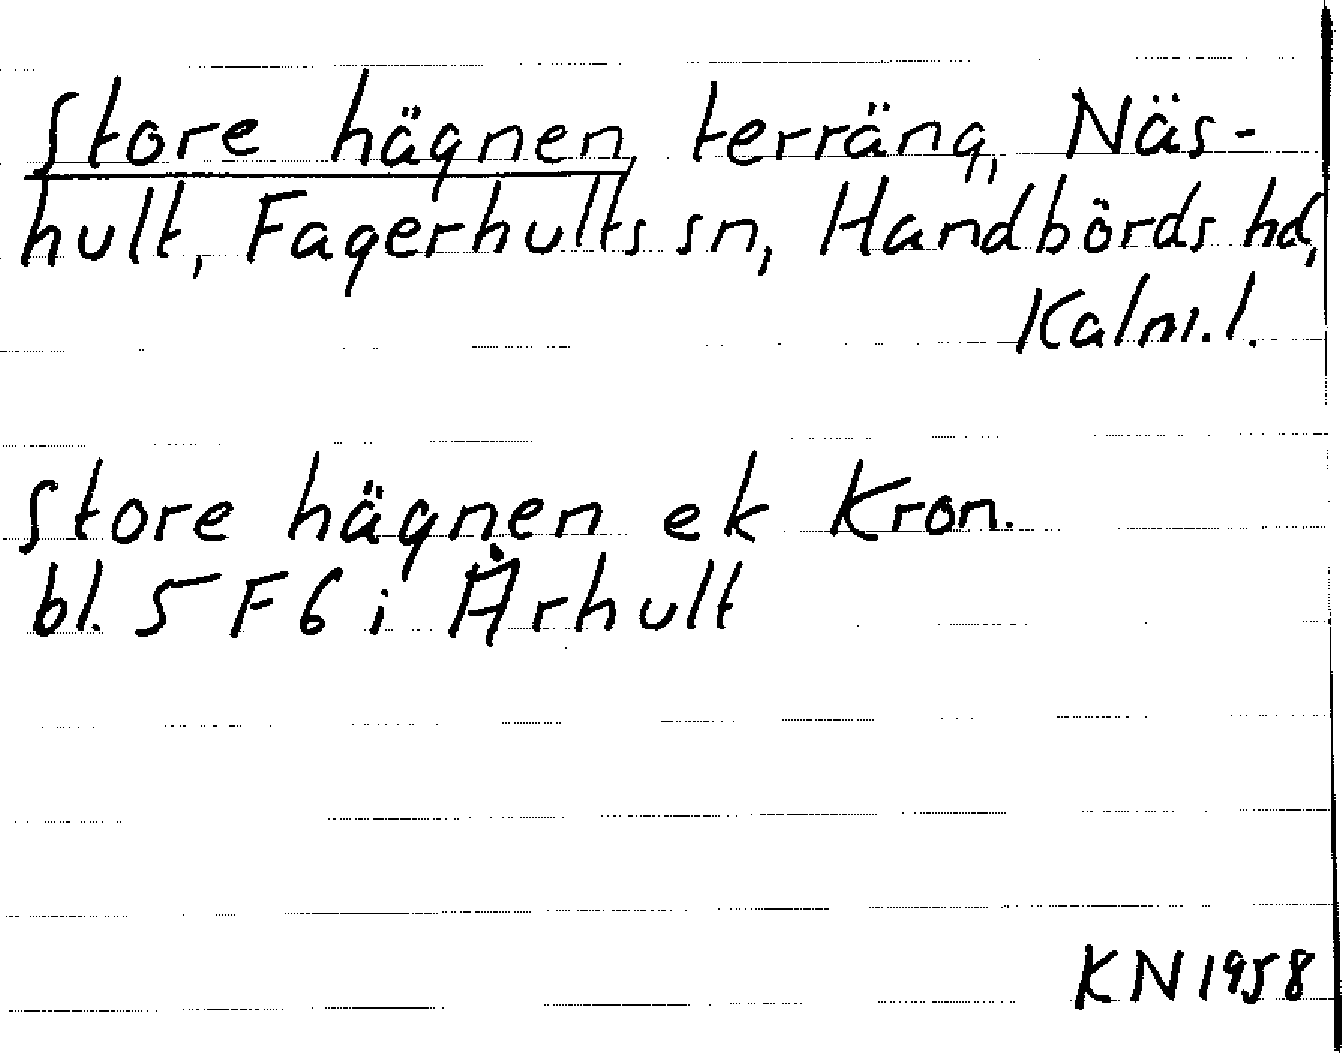 Store hägnen, terräng, Näs-
hult, Fagerhults sn, Handbörds hd,
Kalm. l.
Store hägnen ek Kron.
bl. 5 F 6 i Århult
KN 1958